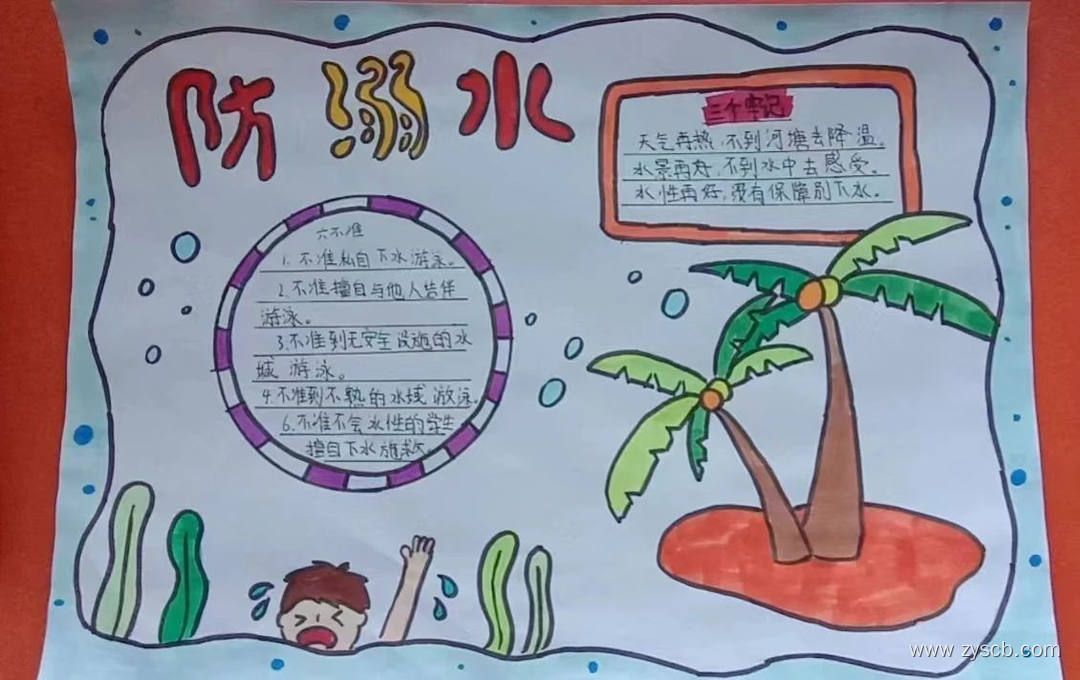 防溺水
三个牢记
天气再热,不到河塘去降温。
水景再好,不到水中去感受。
水性再好,没有保障别下水。
六不准
1. 不准私自下水游泳。
2.不准擅自与他人结伴
游泳。
3.不准到无安全设施的水
域 游泳。
4.不准到不熟的水域 游泳。
6.不准不会水性的学生
擅自下水施救。
www.zyscb.com